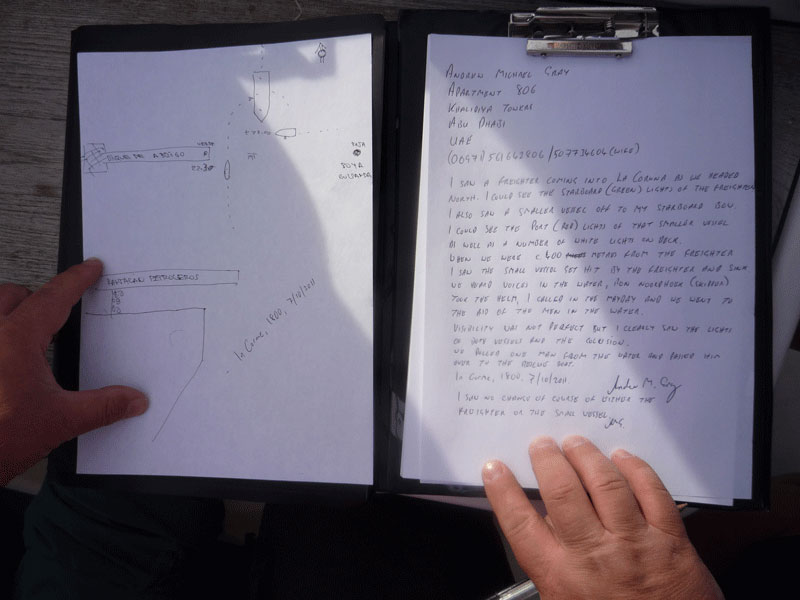 DIQUE DE ABRIGO
ROJA
BOYA
PANTALAN PETROLEROS
La Coruna, 1800, 7/10/2011
ANDREW MICHAEL GRAY
APARTMENT 806
KHALIDIYA TOWERS
ABU DHABI
UAE
(WIFE)
I SAW A FREIGHTER COMING INTO LA CORUNA AS WE HEADED
NORTH. I COULD SEE THE STARBOARD (GREEN) LIGHTS OF THE FREIGHTER
I ALSO SAW A SMALLER VESSEL OFF TO MY STARBOARD BOW.
I COULD SEE THE PORT (RED) LIGHTS OF THAT SMALLER VESSEL
AS WELL AS A NUMBER OF WHITE LIGHTS ON DECK.
WHEN WE WERE C.400 METRES FROM THE FREIGHTER
I SAW THE SMALL VESSEL GET HIT BY THE FREIGHTER AND SINK
WE HEARD VOICES IN THE WATER, (SKIPPER)
TOOK THE HELM, I CALLED IN THE MAYDAY AND WE WENT TO
THE AID OF THE MEN IN THE WATER.
VISIBILITY WAS NOT PERFECT BUT I CLEARLY SAW THE LIGHTS
OF BOTH VESSELS AND THE COLLISION.
WE PULLED ONE MAN FROM THE WATER AND PASSED HIM
OVER TO THE RESCUE BOAT.
La Coruna, 1800, 7/10/2011.
Andrew M. Gray
I SAW NO CHANGE OF COURSE OF EITHER THE
FREIGHTER OR THE SMALL VESSEL